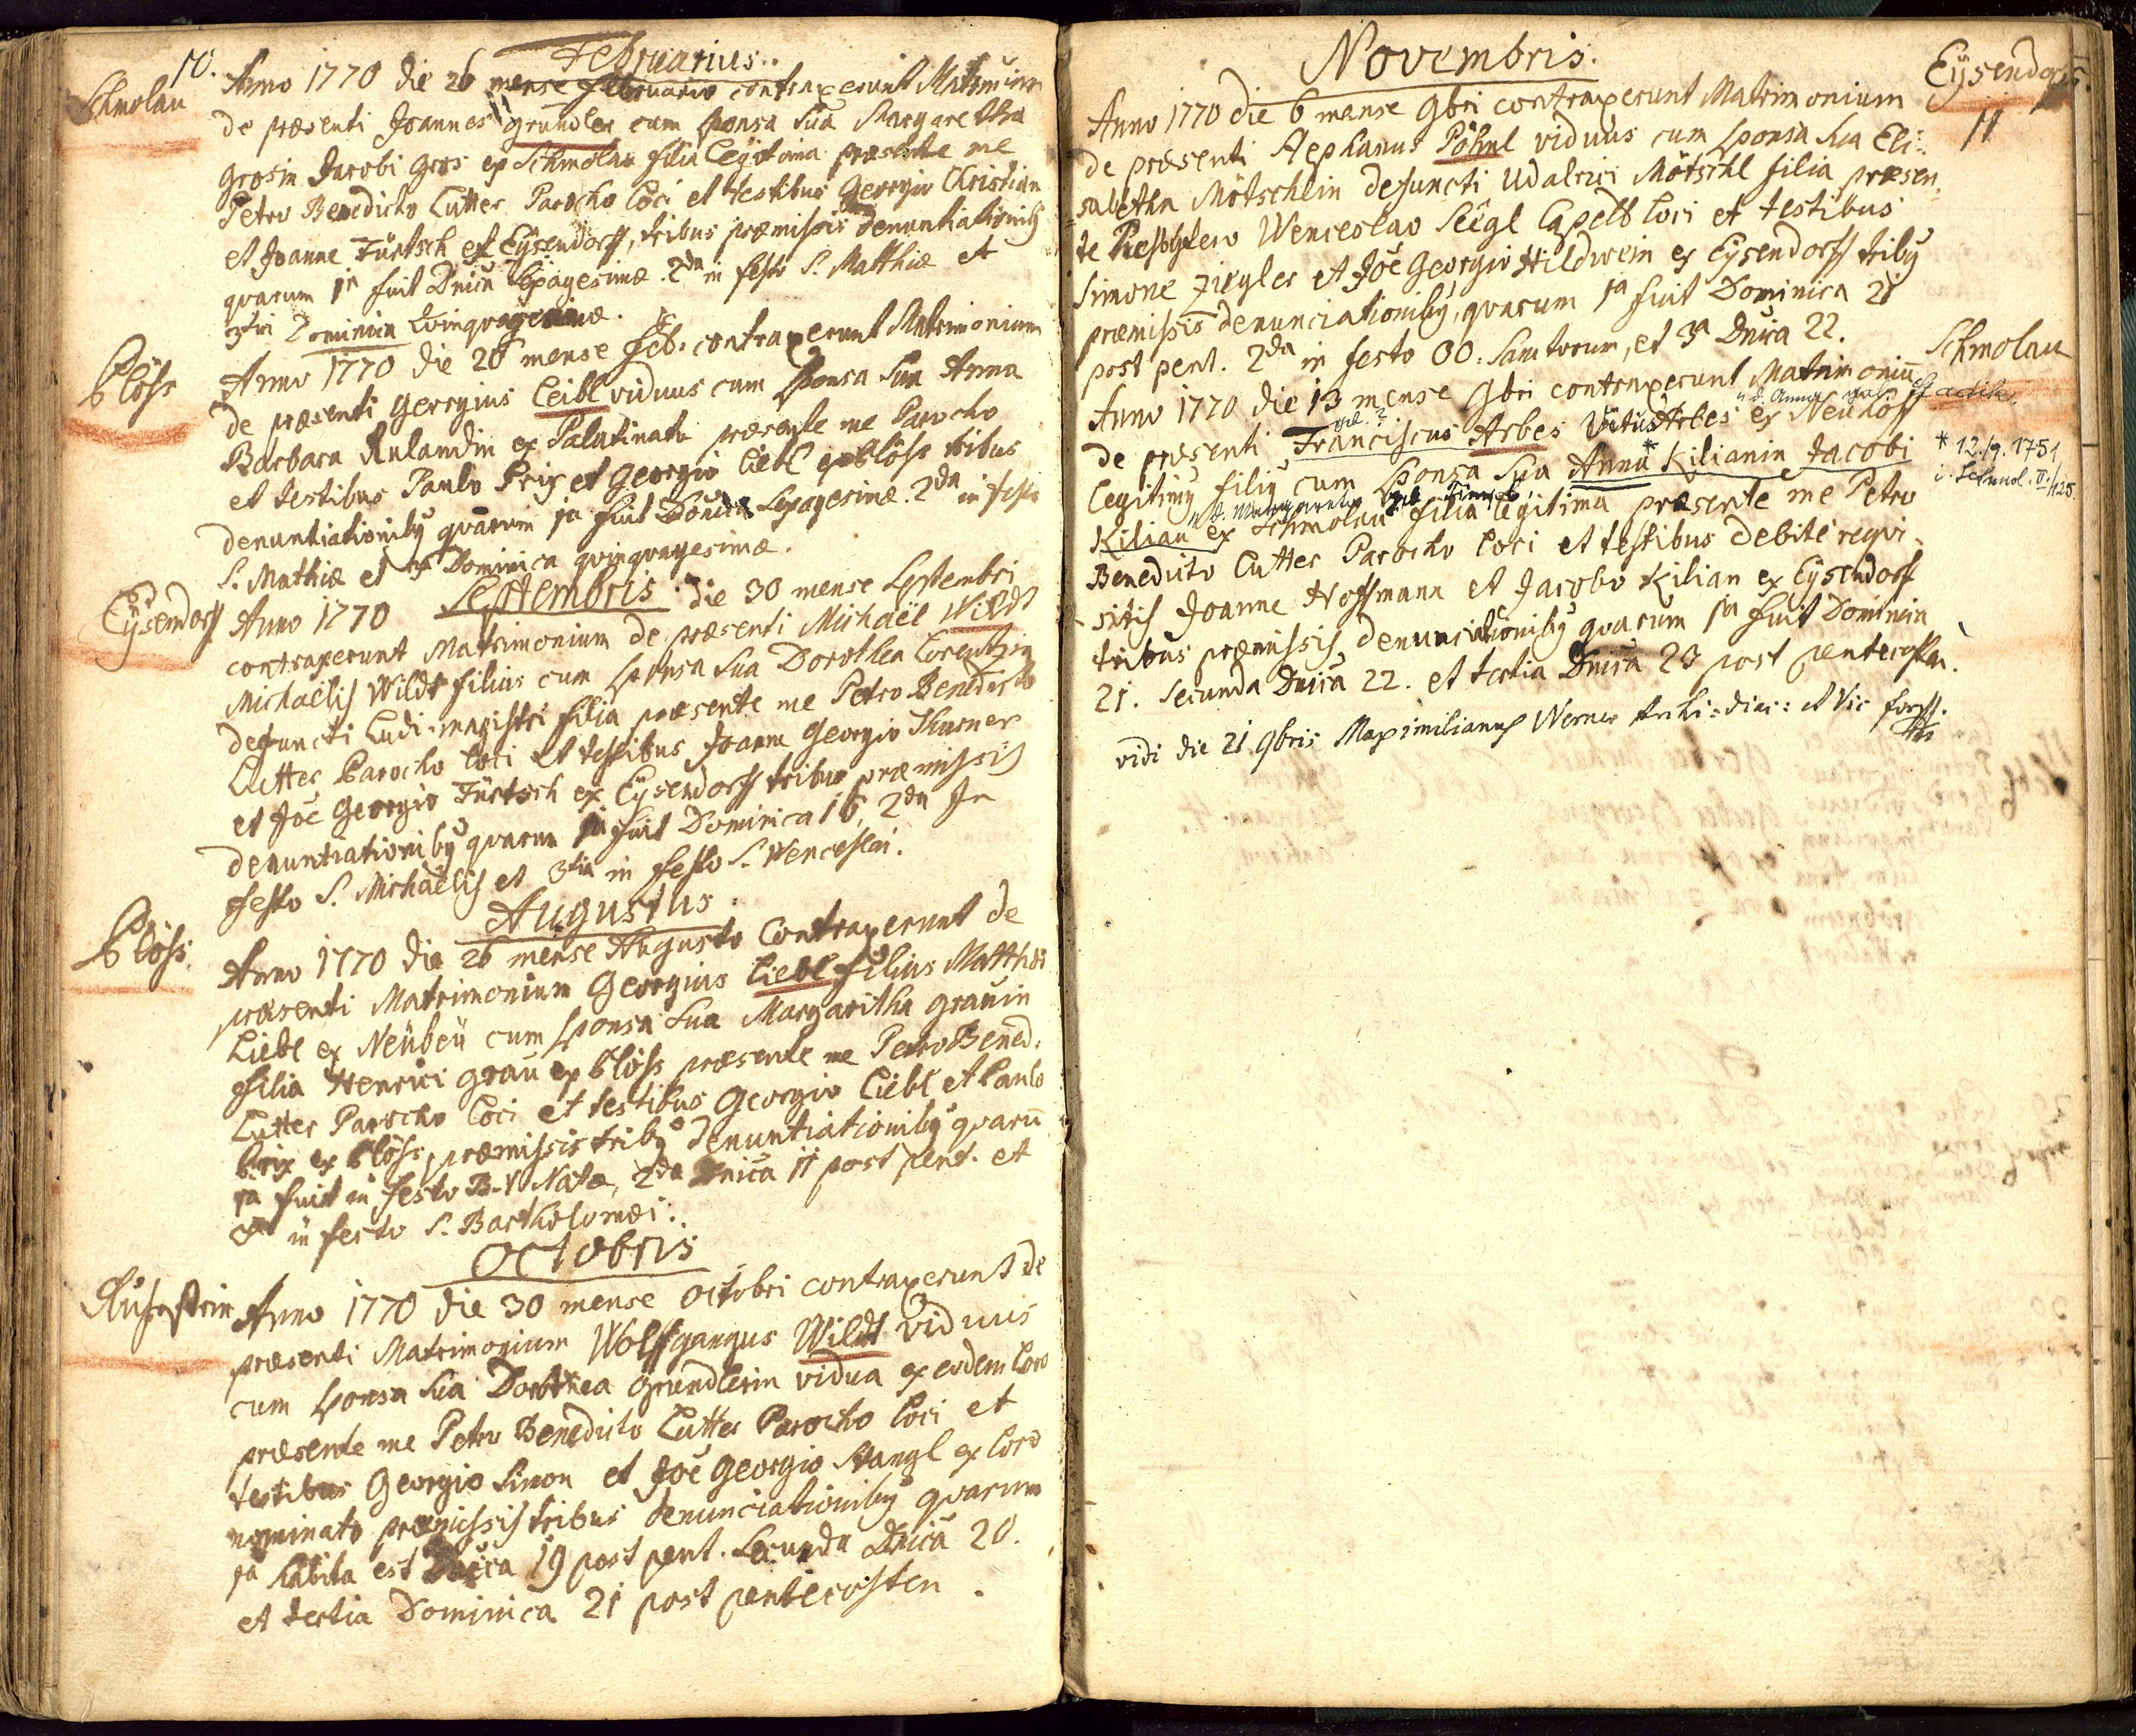 10.
Februarius.
Schmolau
Anno 1770 die 26 mense Februario contraxerunt Matrimium
de præsenti Joannes Gründler cum sponsa sua Margaretha
Grosin Jacobi Gros ex Schmolau filia legitima præsente me
Petro Benedicto Lutter Parocho loci et testibus Georgio Christian
et Joanne Fürtsch ex Eÿsendorff, tribus præmissis denuntiationib9
quarum 1a fuit Dnica Sexagesimæ. 2da in festo S. Matthiæ et
3tia Dominica Quinquagesimæ.
Plöss
Anno 1770 die 26 mense Feb. contraxerunt Matrimonium
de præsenti Georgius Leibl viduus cum sponsa sua Anna
Barbara Rulandin ex Palatinatu præsente me Parocho
et testibus Paulo Prix et Georgio Liebl ex Plöss tribus
denuntiationib9 quarum 1a fuit Dominica Sexagesimæ. 2da in festo
S. Mathiæ et Dominica quinquagesimæ.
Septembris.
Eÿsendorf
Anno 1770 die 30 mense Septembri
contraxerunt Matrimonium de præsenti Michaël Wildt
Michaëlis Wildt filius cum sponsa sua Dorothea Lorentzin
defuncti Ludi-magistri filia præsente me Petro Benedicto
Lutter Parocho loci et testibus Joanne Georgio Thurner
et Joe Georgio Fürtsch ex Eÿsendorff tribus præmissis
denuntiationib9 quarum 1a fuit Dominica 16, 2da In
festo S. Michaëlis et 3tia in festo S. Wenceslai.
Augustus.
Plöss.
Anno 1770 die 26 mense Augusto Contraxerunt de
præsenti Matrimonium Georgius Liebl filius Matthæi
Liebl ex Neübeü cum sponsa sua Margaritha Grauin
filia Henrici Grau ex Plöss præsente me Petro Bened.
Lutter Parocho loci et testibus Georgio Liebl et Paulo
Prix ex Plöss, præmissis trib9 denuntiationib9 quarū
1a fuit in festo B.V. Natæ, 2da Dnica 11 post pent. et
3a in festo S. Bartholomæi.
Octobris
Anno 1770 die 30 mense Octobri contraxerunt de
præsenti Matrimonium Wolffgangus Wildt viduus
cum sponsa sua Dorothea Gründlerin vidua ex eodem loco
præsente me Petro Benedicto Lutter Parocho loci et
testibus Georgio Simon et Joe Georgio Stangl ex loco
nominato præmissis tribus denunciationib9 quarum
1a habita est Dnica 19 post pent. Secunda Dnica 20.
et tertia Dominica 21 post pentecosten.
Novembris.
Eÿsendorff.
11
Anno 1770 die 6 mense 9bri contraxerunt Matrimonium
de præsenti Stephanus Pöhnl viduus cum sponsa sua Eli=
sabetha Mötschlin defuncti Udalrici Mötschl filia præsen=
te Presbytero Wenceslao Siegl Capell. loci et testibus
Simone Ziegler et Joe Georgio Hildwein ex Eÿsendorff trib9
præmissis denunciationib9, quarum 1a fuit Dominica 21
post pent. 2da in festo OO: Sanctorum, et 3a Dnica 22.
Schmolau
Anno 1770 die 13 mense 9bri contraxerunt Matrimoniū
de præsenti Franciscus Arbes Vitus Arbes ex Neuhoff
legitim9 fili9 cum sponsa sua Anna * Kilianin Jacobi
* 12./9. 1751
Kilian ex Schmolau filia legitima præsente me Petro
Benedicto Lutter Parocho loci et testibus debite requi-
sitis Joanne Hoffmann et Jacobo Kilian ex Eÿsendorf
tribus præmissis denunciationib9 quarum 1a fuit Dominica
21. Secunda Dnica 22. et tertia Dnica 23 post pentecosten.
vidi die 21 9bris Maximilianus Werner Archi=diac: et Vic for.